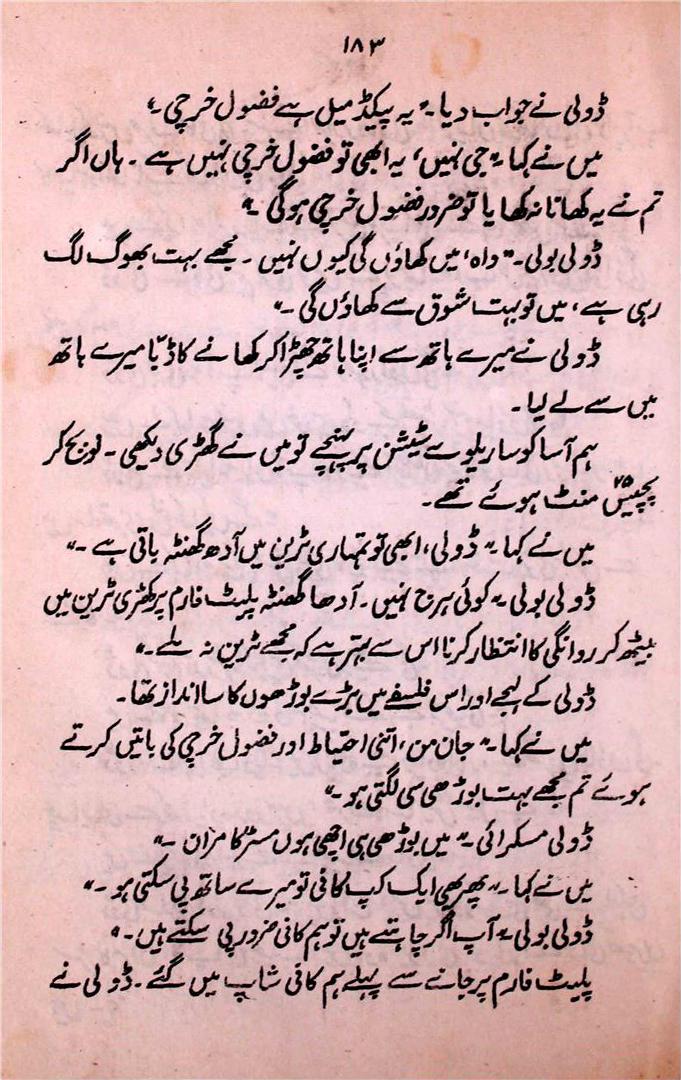 ۱۸۳
ڈولی نے جواب دیا۔ "یہ پیکڈ میل ہے فضول خرچی۔"
میں نے کہا۔ "جی نہیں، یہ ابھی تو فضول خرچی نہیں ہے۔ ہاں اگر
تم نے یہ کھانا نہ کھایا تو ضرور فضول خرچی ہوگی۔"
ڈولی بولی۔ "واہ، میں کھاؤں گی کیوں نہیں۔ مجھے بہت بھوگ لگ
رہی ہے، میں تو بہت شوق سے کھاؤں گی۔"
ڈولی نے میرے ہاتھ سے اپنا ہاتھ چھڑا کر کھانے کا ڈبّا میرے ہاتھ
میں سے لے لیا۔
ہم آساکوسا ریلوے سٹیشن پر پہنچے تو میں نے گھڑی دیکھی۔ نو بج کر
پچیس ۲۵ منٹ ہوئے تھے۔
میں نے کہا۔ "ڈولی، ابھی تو تمہاری ٹرین میں آدھ گھنٹہ باقی ہے۔"
ڈولی بولی۔ "کوئی ہرج نہیں۔ آدھا گھنٹہ پلیٹ فارم پر کھڑی ٹرین میں
بیٹھ کر روانگی کا انتظار کرنا اس سے بہتر ہے کہ مجھے ٹرین نہ ملے۔"
ڈولی کے لہجے اور اس فلسفے میں بڑے بوڑھوں کا سا انداز تھا۔
میں نے کہا۔ "جان من، اتنی احتیاط اور فضول خرچی کی باتیں کرتے
ہوئے تم مجھے بہت بوڑھی سی لگتی ہو۔"
ڈولی مسکرائی۔ "میں بوڑھی ہی اچھی ہوں مسٹر کامران۔"
میں نے کہا۔ "پھر بھی ایک کپ کافی تو میرے ساتھ پی سکتی ہو۔"
ڈولی بولی۔ "آپ اگر چاہتے ہیں تو ہم کافی ضرور پی سکتے ہیں۔"
پلیٹ فارم پر جانے سے پہلے ہم کافی شاپ میں گئے۔ ڈولی نے